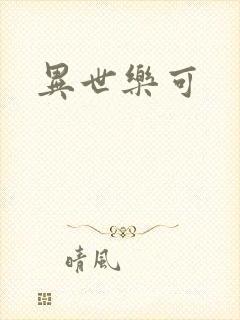 異世樂可
晴風